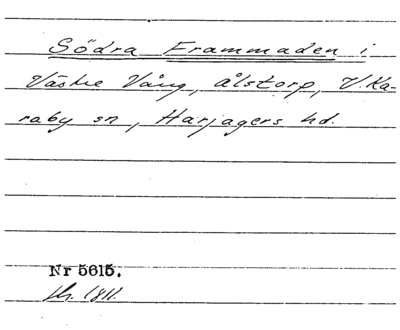 Södra Frammaden i
Västre Vång, Ålstorp, V. Ka-
raby sn, Harjagers hd.
Nr 5615.
1811.